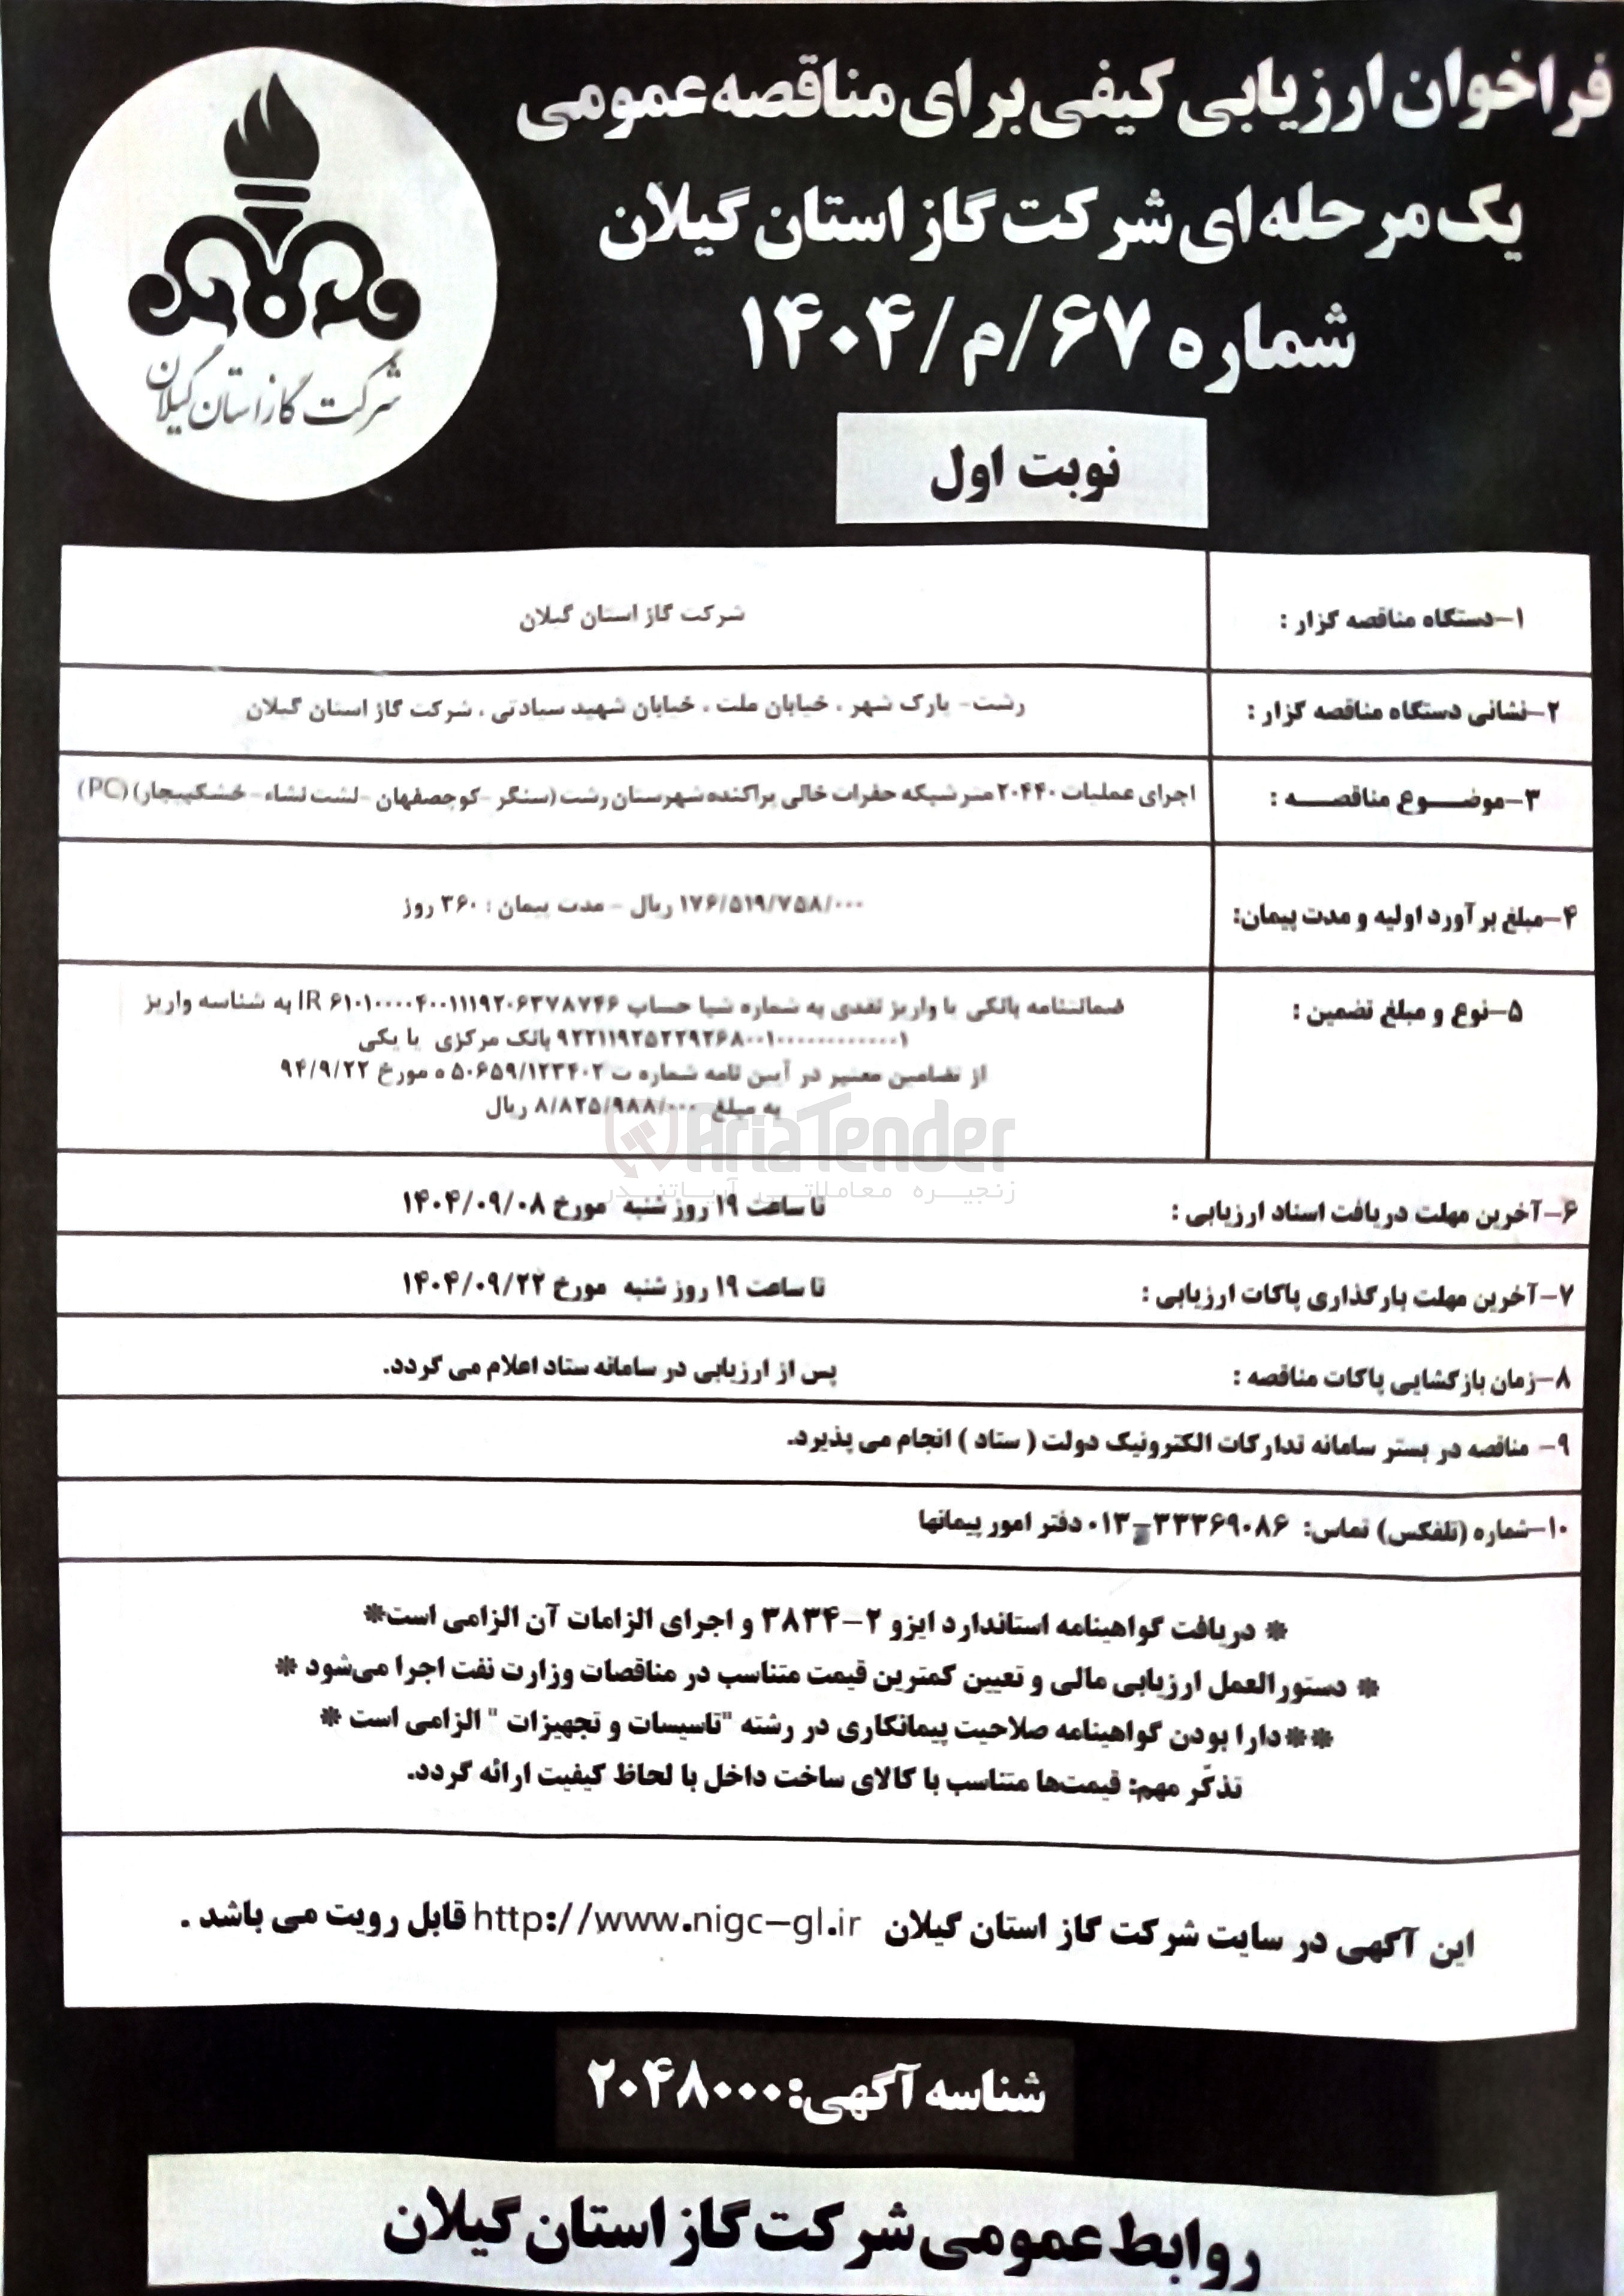 فراخوان ارزیابی کیفی برای مناقصه عمومی
یک مرحله ای شرکت گاز استان گیلان
شماره ۶۷/م/۱۴۰۴
شرکت گاز استان گیلان
نوبت اول
۱-دستگاه مناقصه گزار : شرکت گاز استان گیلان
۲-نشانی دستگاه مناقصه گزار : رشت- پارک شهر ، خیابان ملت ، خیابان شهید سیادتی ، شرکت گاز استان گیلان
۳-موضوع مناقصه : اجرای عملیات ۲۰۴۴۰ متر شبکه حفرات خالی پراکنده شهرستان رشت (سنگر -کوچصفهان -لشت نشاء- خشکبیجار) (PC)
۴-مبلغ برآورد اولیه و مدت پیمان: ۱۷۶/۵۱۹/۷۵۸/۰۰۰ ریال - مدت پیمان : ۳۶۰ روز
۵-نوع و مبلغ تضمین : ضمانتنامه بانکی یا واریز نقدی به شماره شبا حساب IR ۶۱۰۱۰۰۰۰۴۰۰۱۱۱۹۲۰۶۳۷۸۷۴۶ به شناسه واریز
بانک مرکزی یا یکی
از تضامین معتبر در آیین نامه شماره ت ۵۰۶۵۹/۱۲۳۴۰۲ ه مورخ ۹۴/۹/۲۲
به مبلغ ۸/۸۲۵/۹۸۸/۰۰۰ ریال
AriaTender
زنجیره معاملاتی آریاتندر
۶-آخرین مهلت دریافت اسناد ارزیابی : تا ساعت ۱۹ روز شنبه مورخ ۱۴۰۴/۰۹/۰۸
۷-آخرین مهلت بارگذاری پاکات ارزیابی : تا ساعت ۱۹ روز شنبه مورخ ۱۴۰۴/۰۹/۲۲
۸-زمان بازگشایی پاکات مناقصه : پس از ارزیابی در سامانه ستاد اعلام می گردد.
۹- مناقصه در بستر سامانه تدارکات الکترونیک دولت ( ستاد ) انجام می پذیرد.
۱۰-شماره (تلفکس) تماس: ۳۳۳۶۹۰۸۶-۰۱۳ دفتر امور پیمانها
* دریافت گواهینامه استاندارد ایزو ۲-۳۸۳۴ و اجرای الزامات آن الزامی است*
* دستورالعمل ارزیابی مالی و تعیین کمترین قیمت متناسب در مناقصات وزارت نفت اجرا می‌شود *
**دارا بودن گواهینامه صلاحیت پیمانکاری در رشته "تاسیسات و تجهیزات " الزامی است *
تذکّر مهم: قیمت‌ها متناسب با کالای ساخت داخل با لحاظ کیفیت ارائه گردد.
این آگهی در سایت شرکت گاز استان گیلان http://www.nigc-gl.ir قابل رویت می باشد .
شناسه آگهی:۲۰۴۸۰۰۰
روابط عمومی شرکت گاز استان گیلان